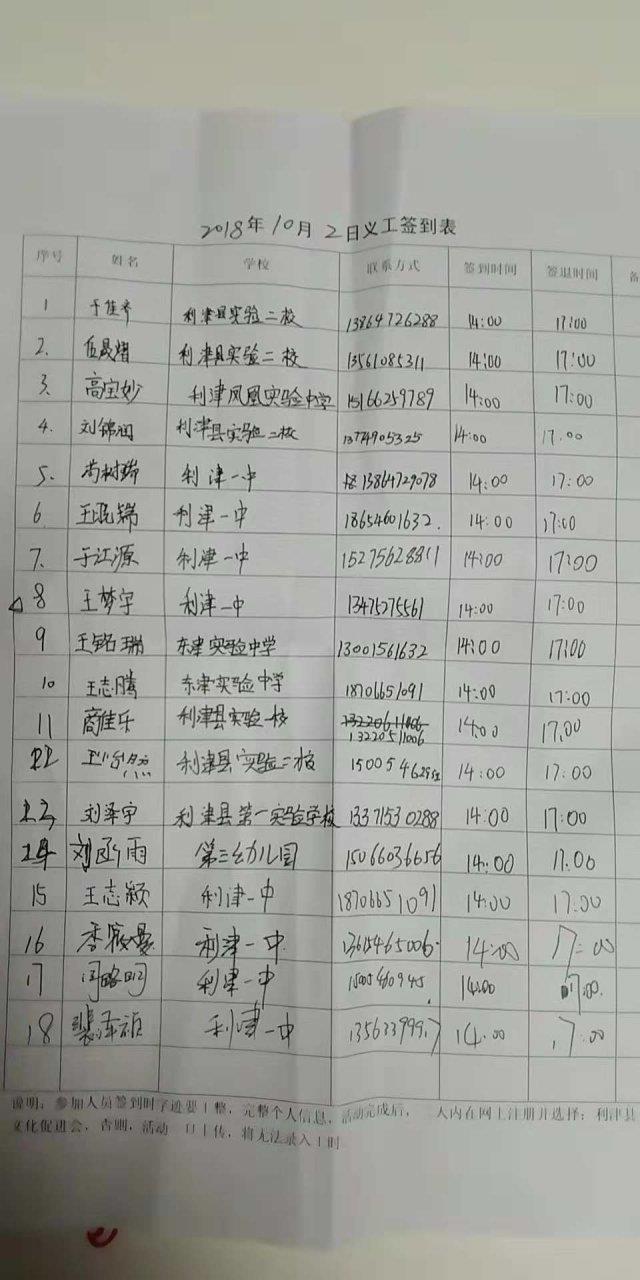 2018年10月2日义工签到表
序号 姓名 学校 联系方式 签到时间 签退时间 备
1 利津县实验二校 13864726288 14:00 17:00
2. 利津县实验二校 13561085311 14:00 17:00
3. 高宝妙 利津凤凰实验中学 15166259789 14:00 17:00
4. 刘锦润 利津县实验二校 13774905325 14:00 17.00
5. 尚树瑞 利津一中 13864729078 14:00 17:00
6. 利津一中 18654601632. 14:00 17:00
7. 于江源 利津一中 15275628811 14:00 17:00
8 王梦宇 利津一中 13475275561 14:00 17:00
9 王铭瑞 东津实验中学 13001561632 14:00 17:00
10 王志腾 东津实验中学 18706651091 14:00 17:00
11 商佳乐 利津县实验一校 13220511006 14:00 17.00
12 利津县实验二校 14:00 17:00
13 刘泽宇 利津县第一实验学校 13371530288 14:00 17:00
14 刘函雨 第三幼儿园 15066036656 14:00 17:00
15 王志颖 利津一中 18706651091 14:00 17:00
16 利津一中 14:00 17:00
17 闫晤明 利津一中 14:00 17:00.
18 利津一中 14.00 17.00
说明:参加人员签到时字迹要工整,完整个人信息,活动完成后, 人内在网上注册并选择:利津县
文化促进会,否则,活动 传,将无法录入 时